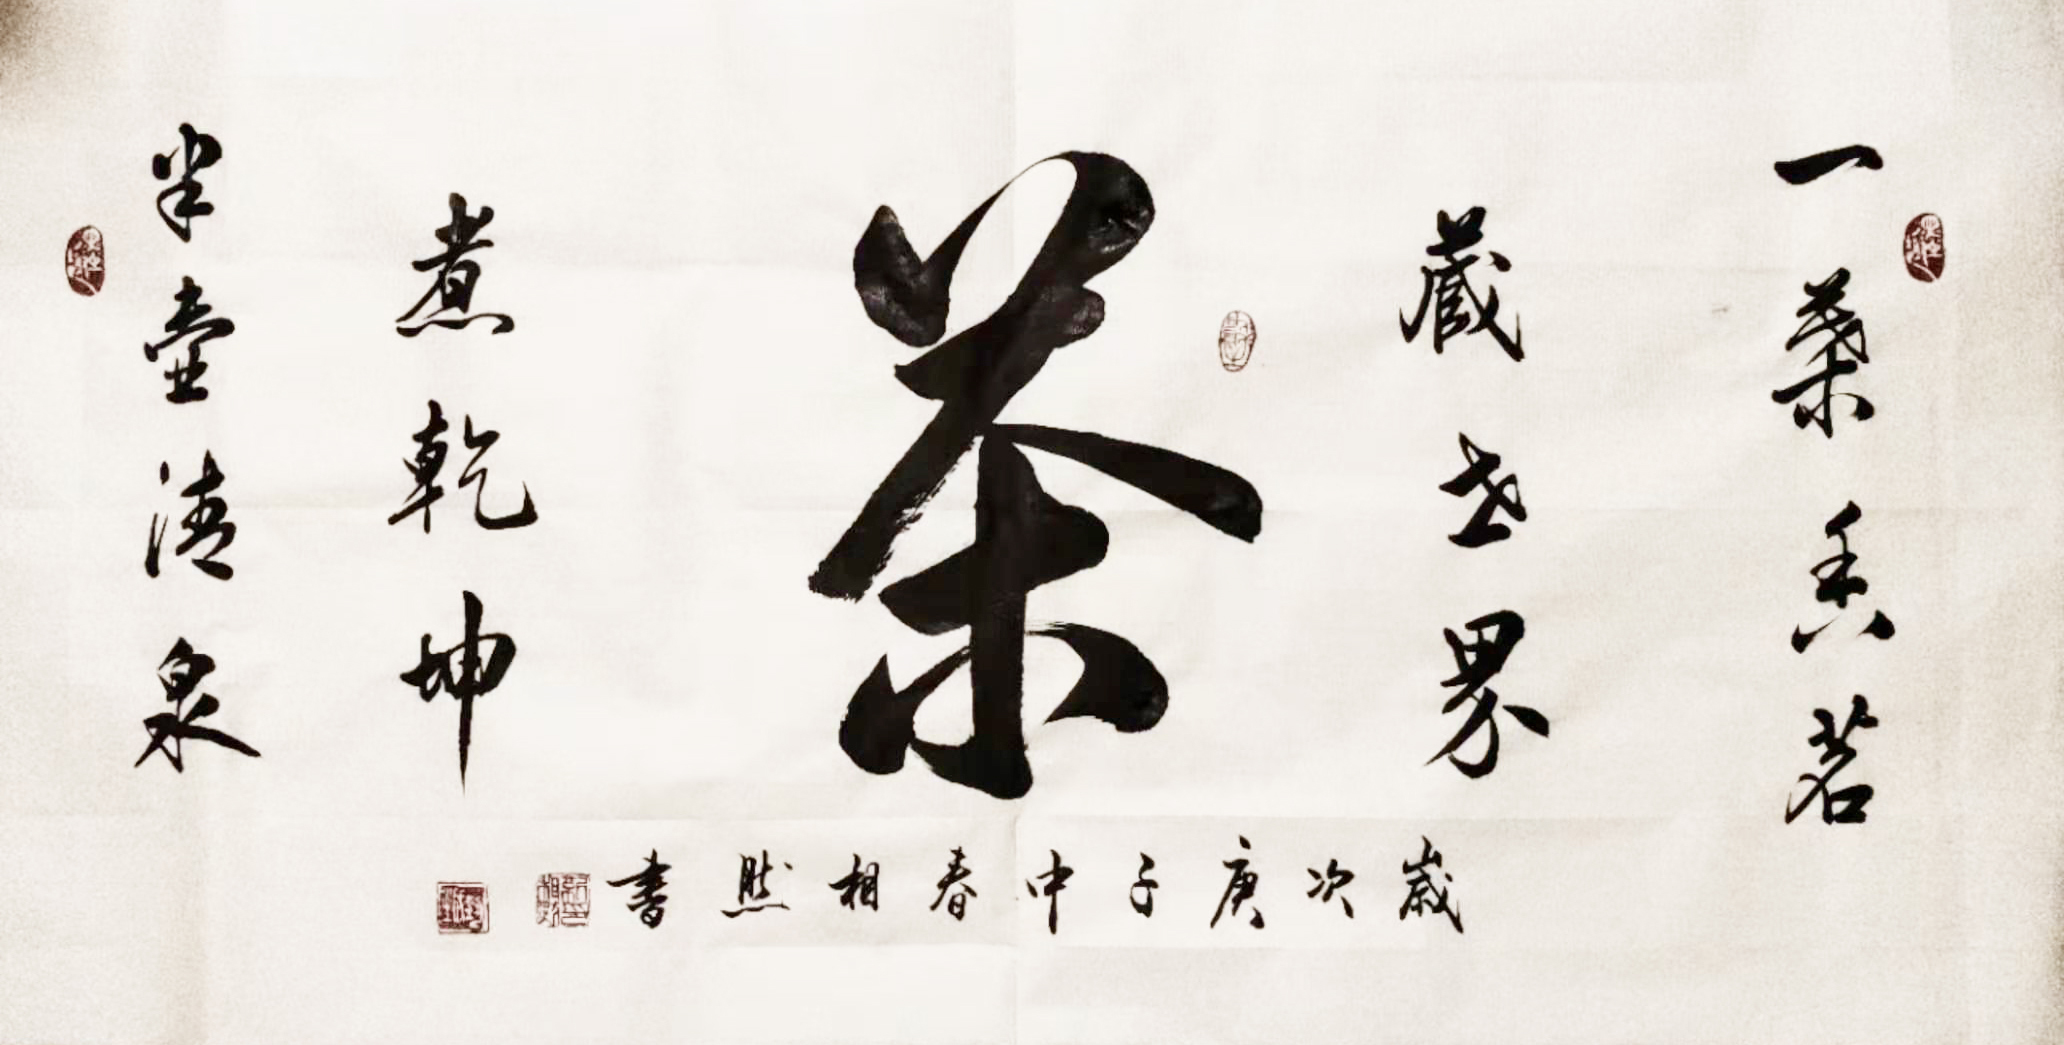 一葉香茗
藏世界
茶
煮乾坤
半壺清泉
歲次庚子中春相然書